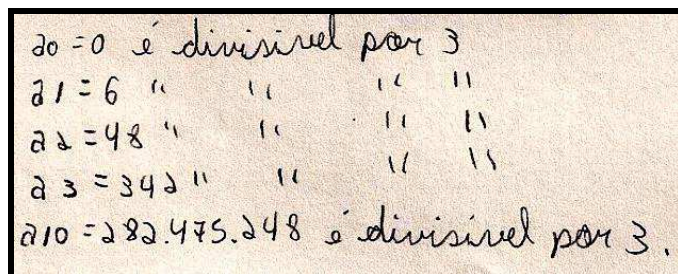 a0 = 0 é divisivel por 3
a1 = 6 " " " "
a2 = 48 " " " "
a3 = 342 " " " "
a10 = 282.475.248 é divisivel por 3.